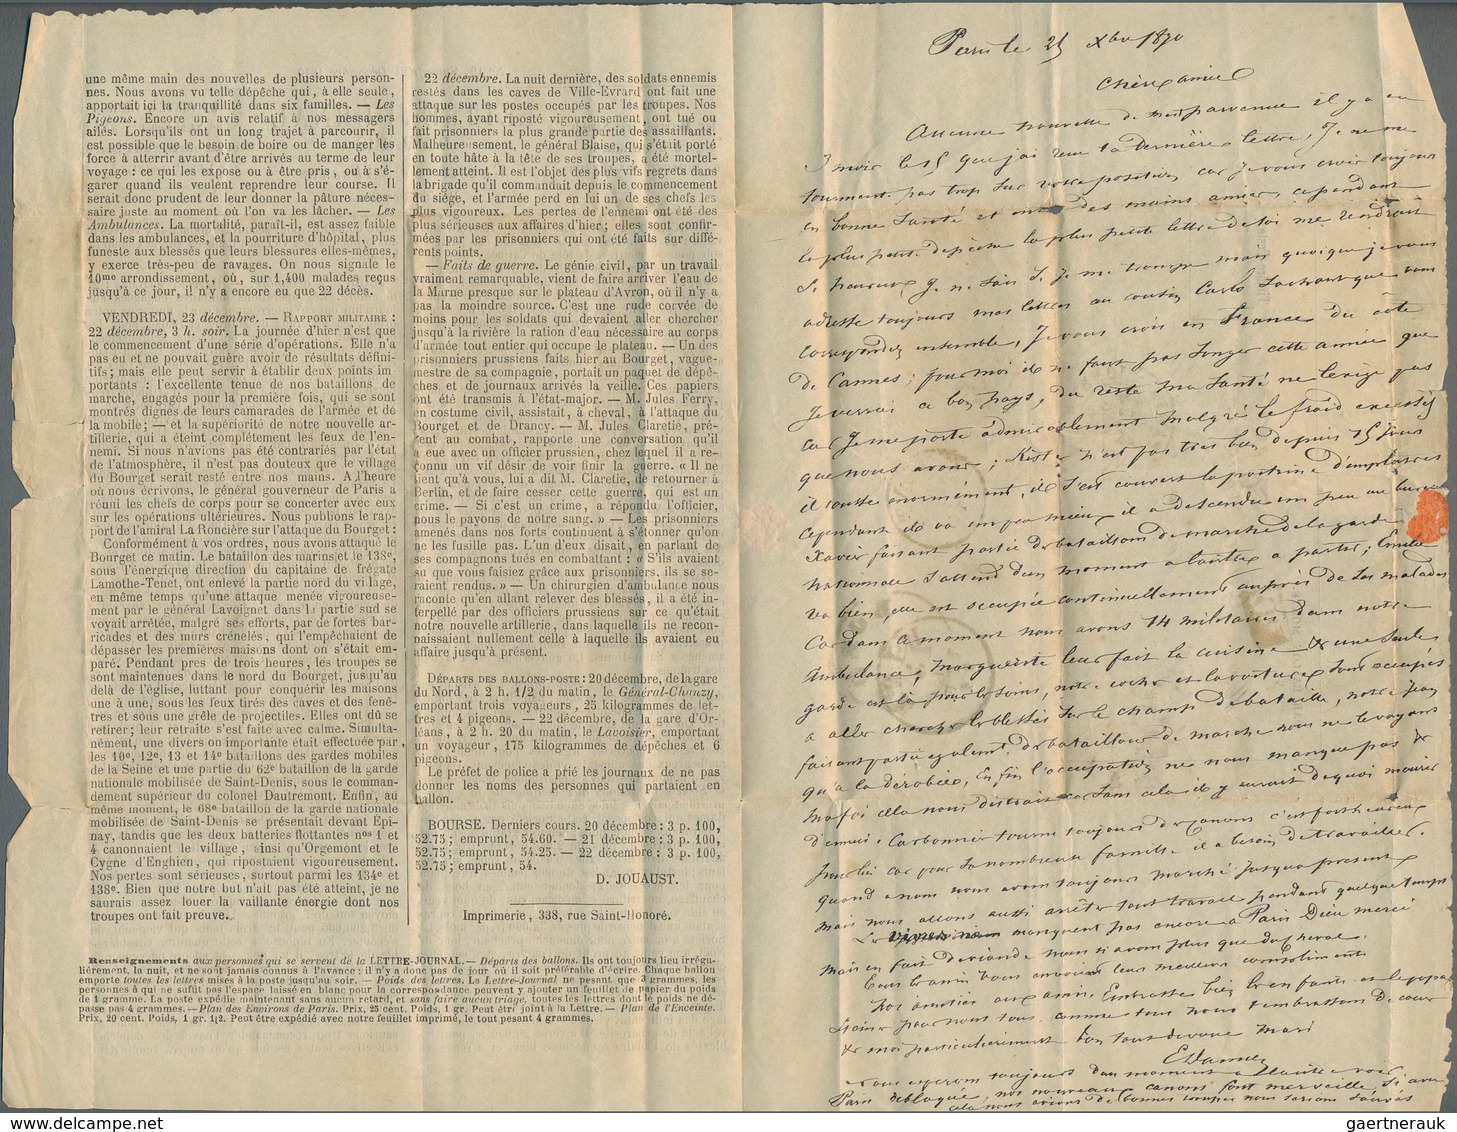 une même main des nouvelles de plusieurs person-
nes. Nous avons vu telle dépêche qui, à elle seule,
apportait ici la tranquillité dans six familles. — Les
Pigeons. Encore un avis relatif à nos messagers
ailés. Lorsqu'ils ont un long trajet à parcourir, il
est possible que le besoin de boire ou de manger les
force à atterrir avant d'être arrivés au terme de leur
voyage : ce qui les expose ou à être pris, ou à s'é-
garer quand ils veulent reprendre leur course. Il
serait donc prudent de leur donner la pâture néces-
saire juste au moment où l'on va les lâcher. — Les
Ambulances. La mortalité, paraît-il, est assez faible
dans les ambulances, et la pourriture d'hôpital, plus
funeste aux blessés que leurs blessures elles-mêmes,
y exerce très-peu de ravages. On nous signale le
10me arrondissement, où, sur 1,400 malades reçus
jusqu'à ce jour, il n'y a encore eu que 22 décès.
VENDREDI, 23 décembre. — RAPPORT MILITAIRE :
22 décembre, 3 h. soir. La journée d'hier n'est que
le commencement d'une série d'opérations. Elle n'a
pas eu et ne pouvait guère avoir de résultats défini-
tifs; mais elle peut servir à établir deux points im-
portants : l'excellente tenue de nos bataillons de
marche, engagés pour la première fois, qui se sont
montrés dignes de leurs camarades de l'armée et de
la mobile; — et la supériorité de notre nouvelle ar-
tillerie, qui a éteint complétement les feux de l'en-
nemi. Si nous n'avions pas été contrariés par l'état
de l'atmosphère, il n'est pas douteux que le village
du Bourget serait resté entre nos mains. A l'heure
où nous écrivons, le général gouverneur de Paris a
réuni les chefs de corps pour se concerter avec eux
sur les opérations ultérieures. Nous publions le rap-
port de l'amiral La Roncière sur l'attaque du Bourget :
Conformément à vos ordres, nous avons attaqué le
Bourget ce matin. Le bataillon des marins et le 138e,
sous l'énergique direction du capitaine de frégate
Lamothe-Tenet, ont enlevé la partie nord du village,
en même temps qu'une attaque menée vigoureuse-
ment par le général Lavoignet dans la partie sud se
voyait arrêtée, malgré ses efforts, par de fortes bar-
ricades et des murs crénelés, qui l'empêchaient de
dépasser les premières maisons dont on s'était em-
paré. Pendant près de trois heures, les troupes se
sont maintenues dans le nord du Bourget, jusqu'au
delà de l'église, luttant pour conquérir les maisons
une à une, sous les feux tirés des caves et des fenê-
tres et sous une grêle de projectiles. Elles ont dû se
retirer; leur retraite s'est faite avec calme. Simulta-
nément, une diversion importante était effectuée par
les 10e, 12e, 13 et 14e bataillons des gardes mobiles
de la Seine et une partie du 62e bataillon de la garde
nationale mobilisée de Saint-Denis, sous le comman-
dement supérieur du colonel Dautremont. Enfin, au
même moment, le 68e bataillon de la garde nationale
mobilisée de Saint-Denis se présentait devant Epi-
nay, tandis que les deux batteries flottantes nos 1 et
4 canonnaient le village, ainsi qu'Orgemont et le
Cygne d'Enghien, qui ripostaient vigoureusement.
Nos pertes sont sérieuses, surtout parmi les 134e et
138e. Bien que notre but n'ait pas été atteint, je ne
saurais assez louer la vaillante énergie dont nos
troupes ont fait preuve.
22 décembre. La nuit dernière, des soldats ennemis
restés dans les caves de Ville-Evrard ont fait une
attaque sur les postes occupés par les troupes. Nos
hommes, ayant riposté vigoureusement, ont tué ou
fait prisonniers la plus grande partie des assaillants.
Malheureusement, le général Blaise, qui s'était porté
en toute hâte à la tête de ses troupes, a été mortel-
lement atteint. Il est l'objet des plus vifs regrets dans
la brigade qu'il commandait depuis le commencement
du siége, et l'armée perd en lui un de ses chefs les
plus vigoureux. Les pertes de l'ennemi ont été des
plus sérieuses aux affaires d'hier; elles sont confir-
mées par les prisonniers qui ont été faits sur diffé-
rents points.
— Faits de guerre. Le génie civil, par un travail
vraiment remarquable, vient de faire arriver l'eau de
la Marne presque sur le plateau d'Avron, où il n'y a
pas la moindre source. C'est une rude corvée de
moins pour les soldats qui devaient aller chercher
jusqu'à la rivière la ration d'eau nécessaire au corps
d'armée tout entier qui occupe le plateau. — Un des
prisonniers prussiens faits hier au Bourget, vague-
mestre de sa compagnie, portait un paquet de dépê-
ches et de journaux arrivés la veille. Ces papiers
ont été transmis à l'état-major. — M. Jules Ferry,
en costume civil, assistait, à cheval, à l'attaque du
Bourget et de Drancy. — M. Jules Claretie, pré-
sent au combat, rapporte une conversation qu'il
a eue avec un officier prussien, chez lequel il a re-
connu un vif désir de voir finir la guerre. « Il ne
tient qu'à vous, lui a dit M. Claretie, de retourner à
Berlin, et de faire cesser cette guerre, qui est un
crime. — Si c'est un crime, a répondu l'officier,
nous le payons de notre sang. » — Les prisonniers
amenés dans nos forts continuent à s'étonner qu'on
ne les fusille pas. L'un d'eux disait, en parlant de
ses compagnons tués en combattant : « S'ils avaient
su que vous faisiez grâce aux prisonniers, ils se se-
raient rendus. » — Un chirurgien d'ambulance nous
raconte qu'en allant relever des blessés, il a été in-
terpellé par des officiers prussiens sur ce qu'était
notre nouvelle artillerie, dans laquelle ils ne recon-
naissaient nullement celle à laquelle ils avaient eu
affaire jusqu'à présent.
DÉPARTS DES BALLONS-POSTE : 20 décembre, de la gare
du Nord, à 2 h. 1/2 du matin, le Général-Chanzy,
emportant trois voyageurs, 25 kilogrammes de let-
tres et 4 pigeons. — 22 décembre, de la gare d'Or-
léans, à 2 h. 20 du matin, le Lavoisier, emportant
un voyageur, 175 kilogrammes de dépêches et 6
pigeons.
Le préfet de police a prié les journaux de ne pas
donner les noms des personnes qui partaient en
ballon.
BOURSE. Derniers cours. 20 décembre : 3 p. 100,
52.75; emprunt, 54.60. — 21 décembre : 3 p. 100,
52.75; emprunt, 54.25. — 22 décembre : 3 p. 100,
52.75; emprunt, 54.
D. JOUAUST.
Imprimerie, 338, rue Saint-Honoré.
Renseignements aux personnes qui se servent de la LETTRE-JOURNAL. — Départs des ballons. Ils ont toujours lieu irrégu-
lièrement, la nuit, et ne sont jamais connus à l'avance : il n'y a donc pas de jour où il soit préférable d'écrire. Chaque ballon
emporte toutes les lettres mises à la poste jusqu'au soir. — Poids des lettres. La Lettre-Journal ne pesant que 3 grammes, les
personnes à qui ne suffit pas l'espace laissé en blanc pour la correspondance peuvent y ajouter un feuillet de papier du poids
de 1 gramme. La poste expédie maintenant sans aucun retard, et sans faire aucun triage, toutes les lettres dont le poids ne dé-
passe pas 4 grammes. — Plan des Environs de Paris. Prix, 25 cent. Poids, 1 gr. Peut être joint à la Lettre. — Plan de l'Enceinte.
Prix, 20 cent. Poids, 1 gr. 1/2. Peut être expédié avec notre feuillet imprimé, le tout pesant 4 grammes.
Paris le 25 Xbre 1870
Chère amie
Aucune nouvelle de m'est parvenue il y a eu
1 mois le 15 que j'ai reçu ta dernière lettre, Je ne me
tourmente pas trop sur votre position car Je vous crois toujours
en bonne Santé et des mains amies, cependant
la plus petite dépêche la plus petite lettre de toi me rendrait
Si heureux Je ne sais Si Je me trompe mais quoique Je vous
adresse toujours mes lettres au cousin Carlo Sachant que vous
correspondez ensemble, Je vous crois en France du côté
de Cannes; pour moi il ne faut pas songer cette année que
Je verrai ce bon pays, du reste ma Santé ne l'exige pas
car Je me porte admirablement malgré le froid excessif
que nous avons; n'est pas très bien depuis 15 Jours
il tousse énormément, il s'est couvert la poitrine d'emplâtres
Cependant il va un peu mieux il a descendu un peu au bureau
Xavier faisant partie des bataillons de marche de la garde
Nationale s'attend d'un moment à l'autre à partir; Emilie
va bien, elle est occupée continuellement auprès de ses malades
Car dans ce moment nous avons 14 militaires dans notre
Ambulance, Marguerite leur fait la cuisine & une Seule
garde est là pour les soins, notre cocher et la voiture sont occupés
à aller chercher les blessés sur le champs de bataille, notre Jean
faisant partie également des bataillons de marche nous ne le voyons
qu'à la dérobée, Enfin l'occupation ne nous manque pas &
ma foi cela nous distrait car sans cela il y aurait de quoi mourir
d'ennui. Carbonnier tourne toujours des canons c'est fort heureux
pour lui car pour sa nombreuse famille il a besoin de travailler.
quand a nous nous avons toujours marché jusqu'à présent
mais nous allons aussi arrêter tout travail pendant quelque temps
Les vivres ne manquent pas encore à Paris Dieu merci
mais en fait de viande nous n'avons plus que du cheval
Tous les amis vous envoient leurs meilleurs compliments
Nos amitiés aux amis, Embrasse bien les enfants et le papa
pour nous tous, comme tous nous t'embrassons de cœur
& moi particulièrement Ton tout dévoué mari
nous espérons toujours d'un moment à l'autre voir
Paris débloqué, nos nouveaux canons sont merveille, Si avec
cela nous avions de bonnes troupes nous serions sauvés
gaertnerauk
www.delcampe.net